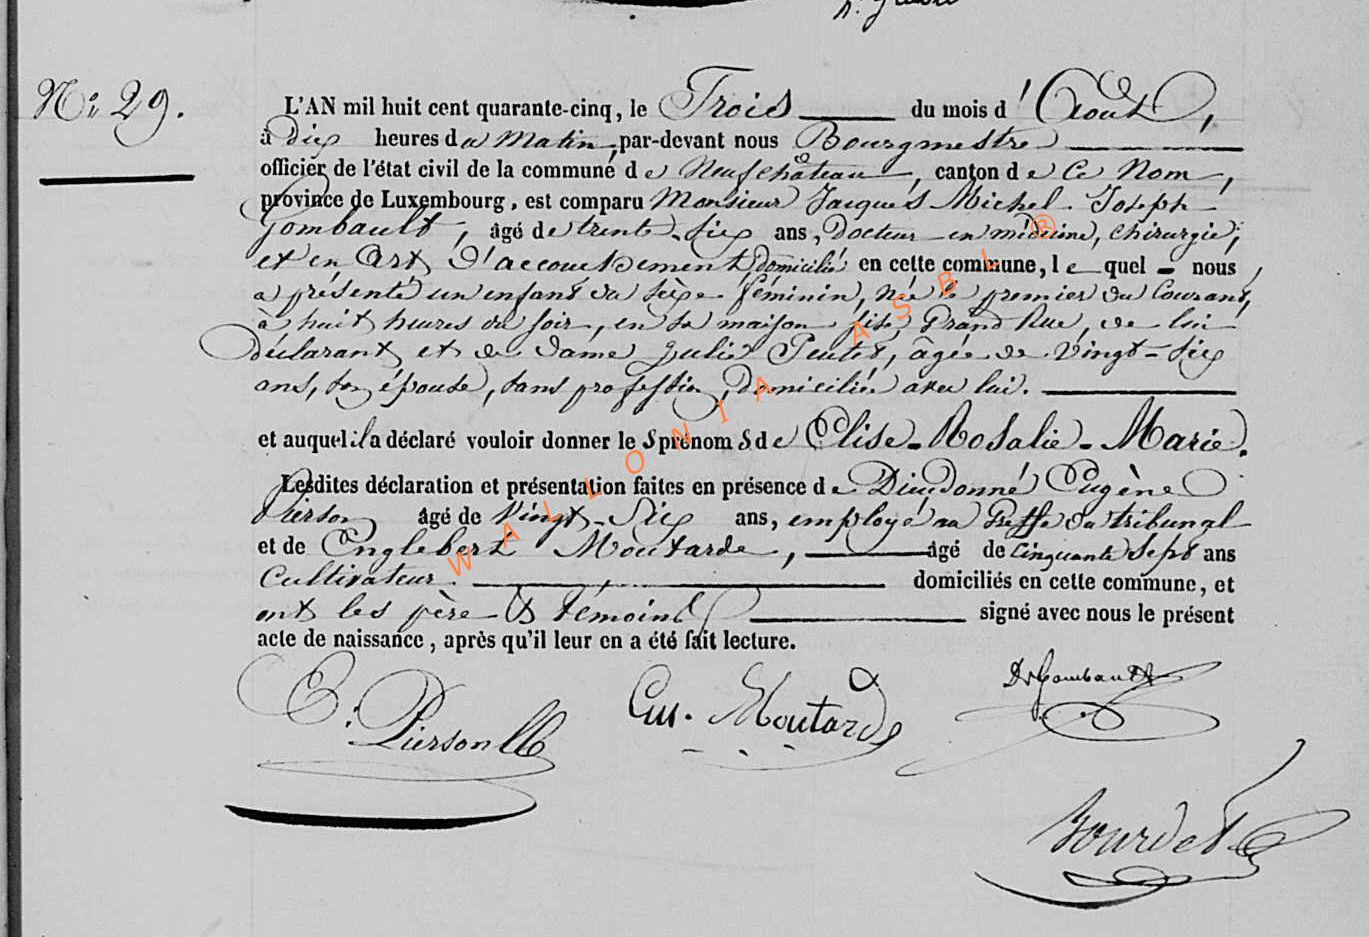 N° 29.
L'AN mil huit cent quarante-cinq, le Trois du mois d' Aout,
à dix heures du Matin, par-devant nous Bourgmestre
officier de l'état civil de la commune de Neufchâteau, canton de Ce Nom,
province de Luxembourg, est comparu Monsieur Jacques Michel Joseph
Gombault, âgé de trente-six ans, Docteur en médecine, chirurgie,
et en Art d'accouchement, domicilié en cette commune, lequel - nous
a présenté un enfant du sexe féminin, née le premier du Courant,
à huit heures du soir, en sa maison sise Grand Rue, de lui
déclarant et de dame Julie Peuter, âgée de vingt-six
ans, son épouse, sans profession, domiciliée avec lui.
et auquel il a déclaré vouloir donner les prénoms de Elise-Rosalie-Marie.
Lesdites déclaration et présentation faites en présence de Dieudonné Eugène
Pierson âgé de Vingt-Six ans, employé au Greffe du tribunal
et de Englebert Moutarde, âgé de cinquante sept ans
Cultivateur. domiciliés en cette commune, et
ont les père et témoins signé avec nous le présent
acte de naissance, après qu'il leur en a été fait lecture.
E. Pierson Moutarde Dr Gombault
Bourdet
WALLONIA ASBL ®